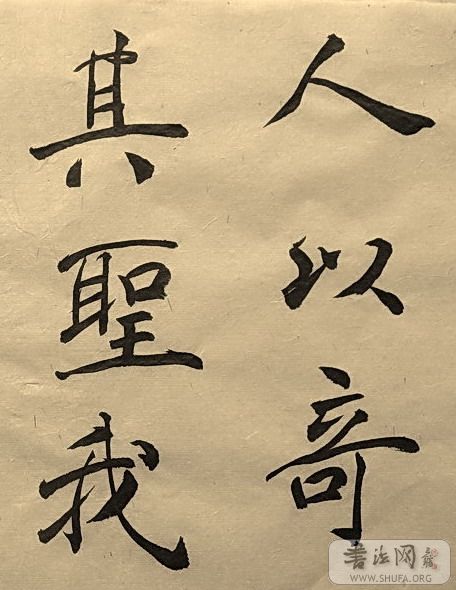 人以竒
其聖我
書法网
WWW.SHUFA.ORG